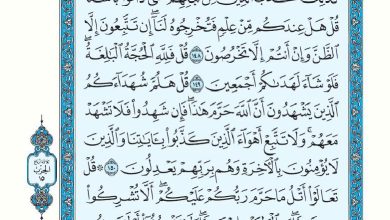 قُلْ هَلْ عِندَكُم مِّنْ عِلْمٍ فَتُخْرِجُوهُ لَنَا إِن تَتَّبِعُونَ إِلَّا
ٱلظَّنَّ وَإِنْ أَنتُمْ إِلَّا تَخْرُصُونَ ١٤٨ قُلْ فَلِلَّهِ ٱلْحُجَّةُ ٱلْبَٰلِغَةُ
فَلَوْ شَآءَ لَهَدَىٰكُمْ أَجْمَعِينَ ١٤٩ قُلْ هَلُمَّ شُهَدَآءَكُمُ
ٱلَّذِينَ يَشْهَدُونَ أَنَّ ٱللَّهَ حَرَّمَ هَٰذَا فَإِن شَهِدُوا۟ فَلَا تَشْهَدْ
مَعَهُمْ وَلَا تَتَّبِعْ أَهْوَآءَ ٱلَّذِينَ كَذَّبُوا۟ بِـَٔايَٰتِنَا وَٱلَّذِينَ
لَا يُؤْمِنُونَ بِٱلْءَاخِرَةِ وَهُم بِرَبِّهِمْ يَعْدِلُونَ ١٥٠ قُلْ
تَعَالَوْا۟ أَتْلُ مَا حَرَّمَ رَبُّكُمْ عَلَيْكُمْ أَلَّا تُشْرِكُوا۟
الحزب
١٥